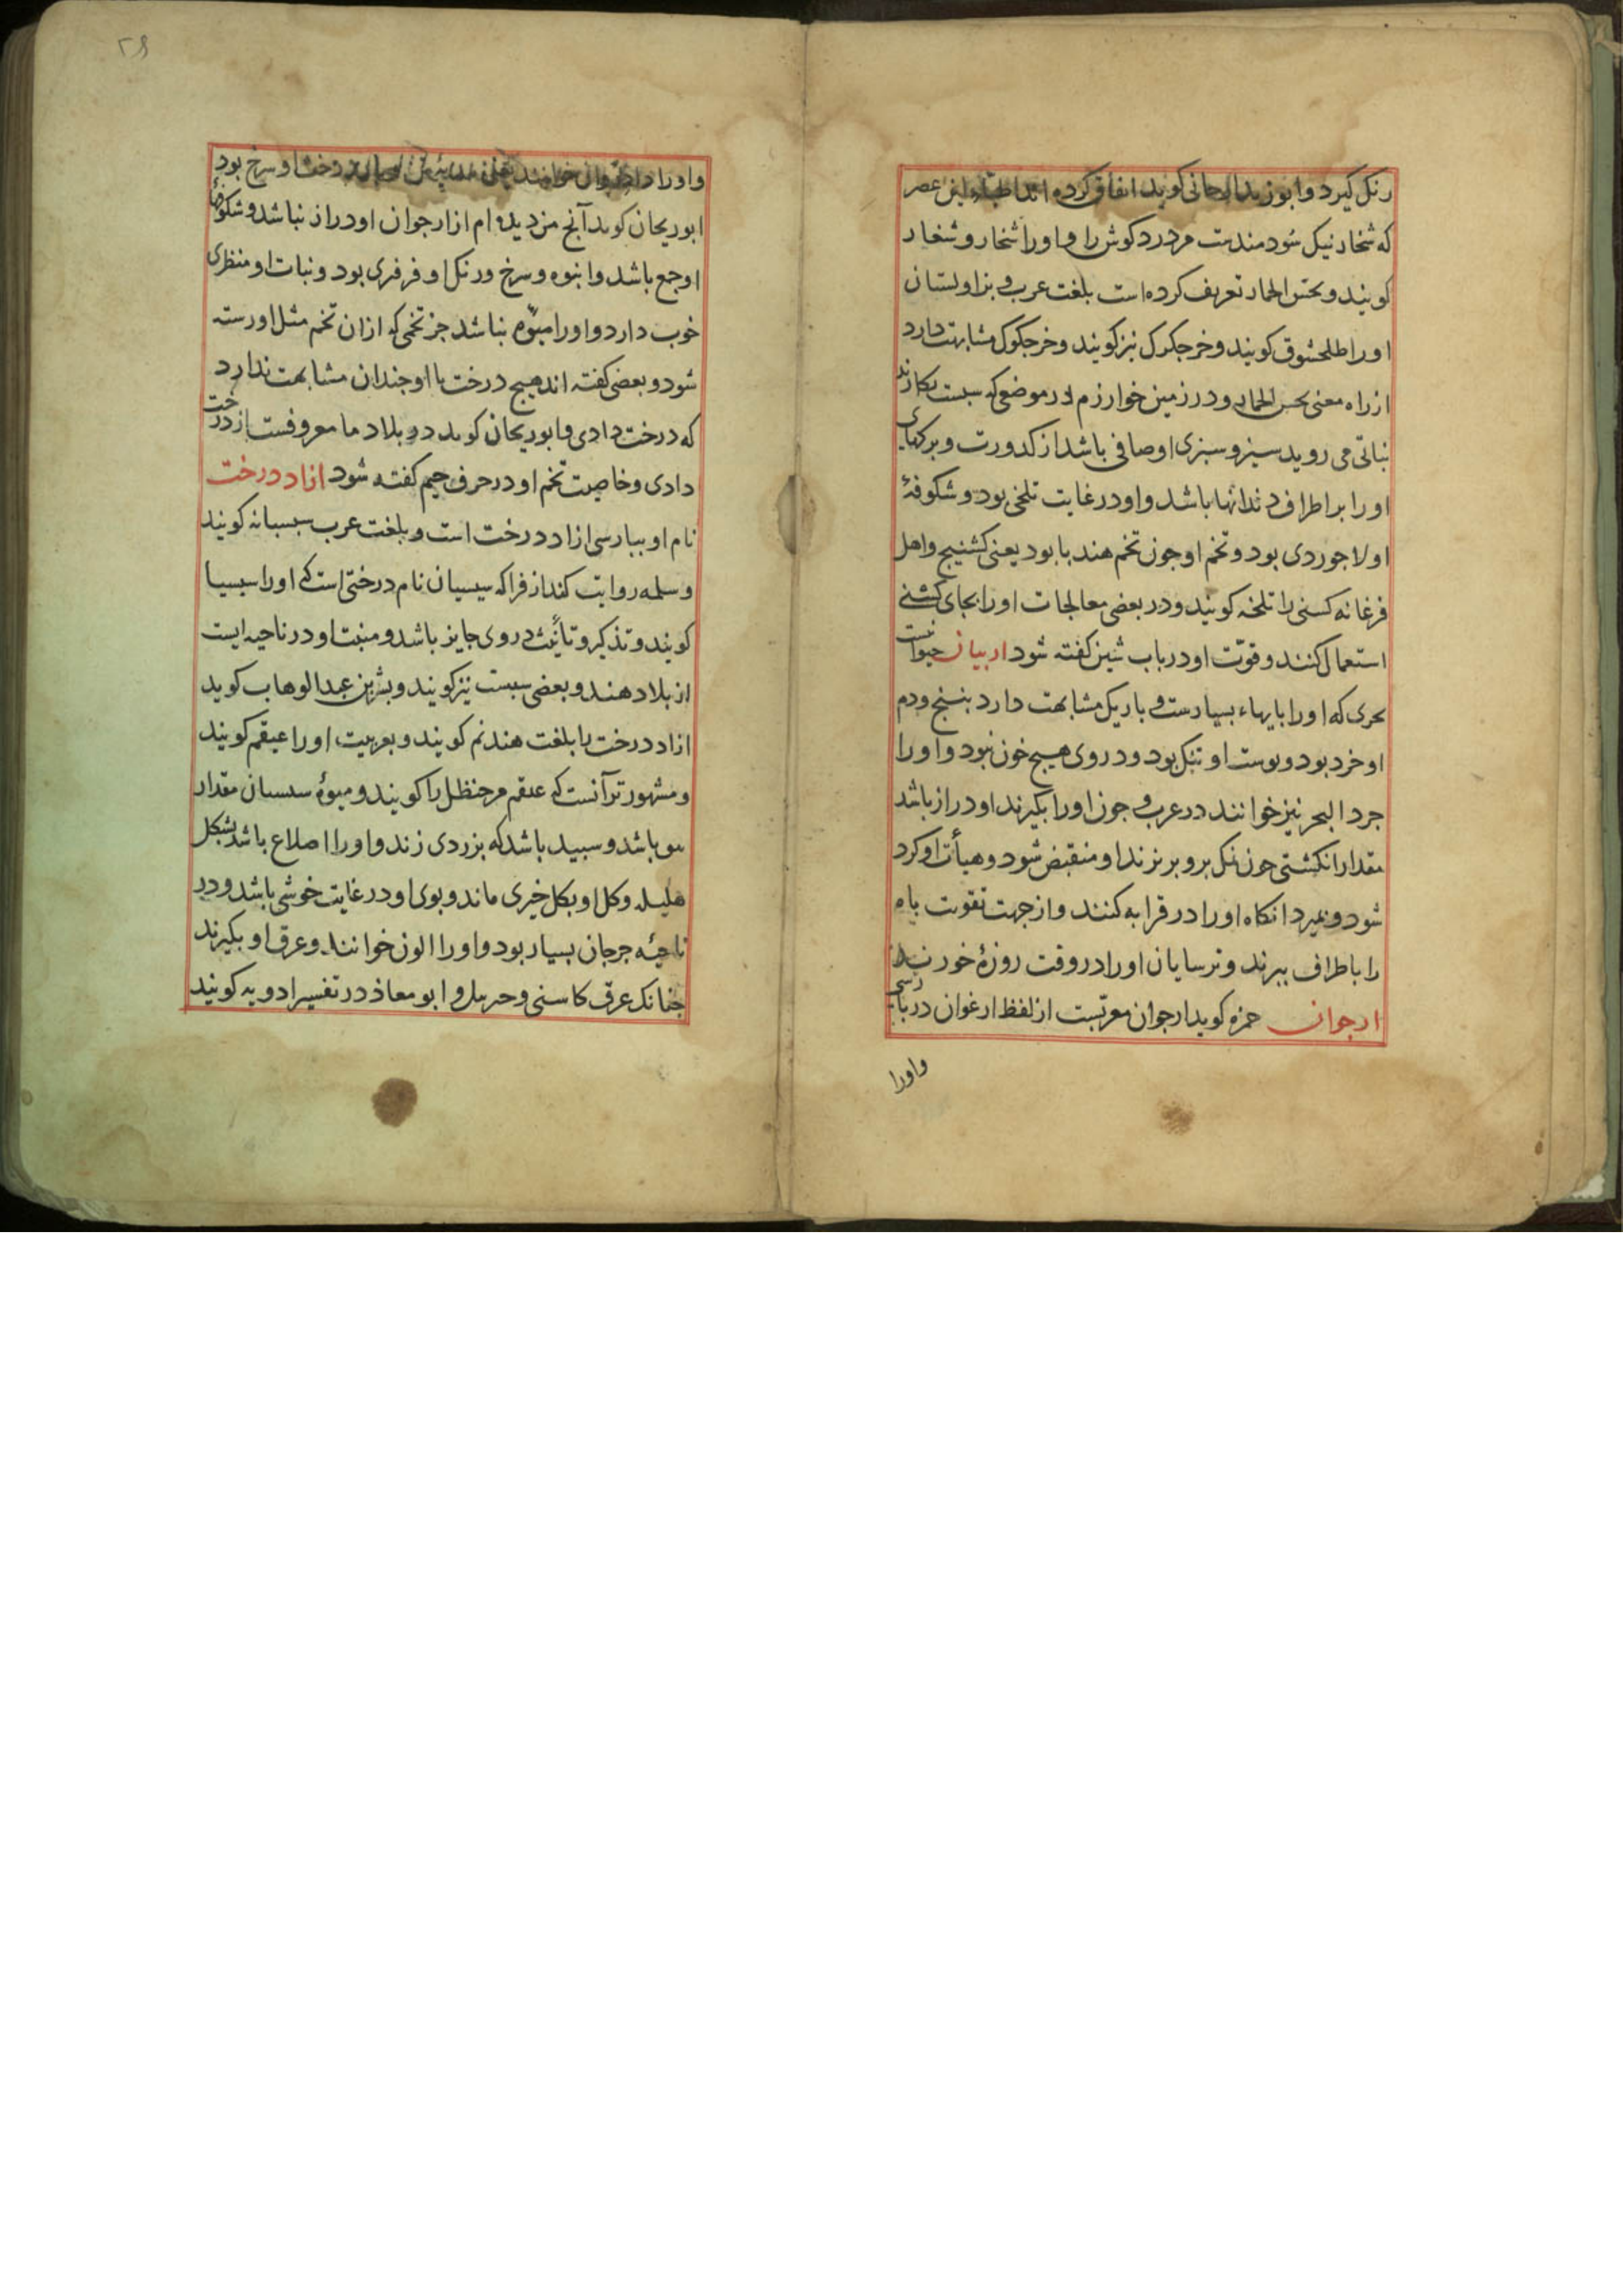 رنك كيرد وابوزيد الرجانى كويد اتفاق كرده اند اطباء اين عصر
كه شخار نيك سُودمندست مر درد كوش را و اورا شخار و شغار
كويند و بحس الحمار تعريف كرده است بلغت عرب و بزاولستان
اورا طلحشوق كويند و خرجكرك نيز كويند و خرجكوك مشابهت دارد
از راه معنى بحس الحمار و در زمين خوارزم در موضعى كه سبست بكارند
نباتى مى رويد سبز و سبزى او صافى باشد از كدورت و بركهاى
اورا بر اطراف دندانها باشد و او در غايت تلخى بود و شكوفۀ
او لاجوردى بود و تخم او جون تخم هندبا بود يعنى كشنيج و اهل
فرغانه كسنى را تلخه كويند و در بعضى معالجات اورا بجاى كشنى
استعمال كنند و قوّت او در باب شين كفته شود اربيان حيوانيست
بحرى كه اورا پايهاء بسيارست و باريك مشابهت دارد بنسنج و دم
او خرد بود و پوست او تنك بود و در وى هيچ خون نبود و اورا
جرد البحر نيز خوانند در عرب و جون اورا بكيرند او دراز باشد
مقدار انكشتى جون نمك برو بريزند او منقبض شود و هيأت او كرد
شود و بميرد انكاه اورا در قرابه كنند و از جهت تقويت باه
را باطراف ببرند و ترسايان اورا در وقت روزۀ خورند
ارجوان حمزه كويد ارجوان معرّبست از لفظ ارغوان در پارسى
واورا
٢٩
واورا خوانند درخت او سرخ بود
ابوريحان كويد آنچ من ديده ام از ارجوان او دراز نباشد و شكوفۀ
او جمع باشد و انبوه و سرخ و رنك او فرفرى بود و نبات او منظرى
خوب دارد و اورا ميوه نباشد جز تخمى كه از ان تخم مثل او رسته
شود و بعضى كفته اند هيچ درخت با او جندان مشابهت ندارد
كه درخت دادى و ابوريحان كويد در بلاد ما معروفست از درخت
دادى و خاصيت تخم او در حرف جيم كفته شود ازاد درخت
نام او بپارسى ازاد درخت است و بلغت عرب سبسبانه كويند
و سلمه روايت كند از فرا كه سيسبان نام درختى است كه اورا سيسبا
كويند و تذكير و تأنيث در وى جايز باشد و منبت او در ناحيه ايست
از بلاد هند و بعضى سبست نيز كويند و بشر بن عبد الوهاب كويد
ازاد درخت را بلغت هند نم كويند و بعربيت اورا عبقم كويند
و مشهورتر آنست كه علقم مر حنظل را كويند و ميوۀ سيسبان مقدار
باشد و سپيد باشد كه بزردى زند و اورا اضلاع باشد بشكل
هليله و كل او بكل خيرى ماند و بوى او در غايت خوشى باشد و در
ناحيۀ جرجان بسيار بود و اورا الون خوانند و عرق او بكيرند
جنانك عرق كاسنى و ابومعاذ در تفسير ادويه كويند